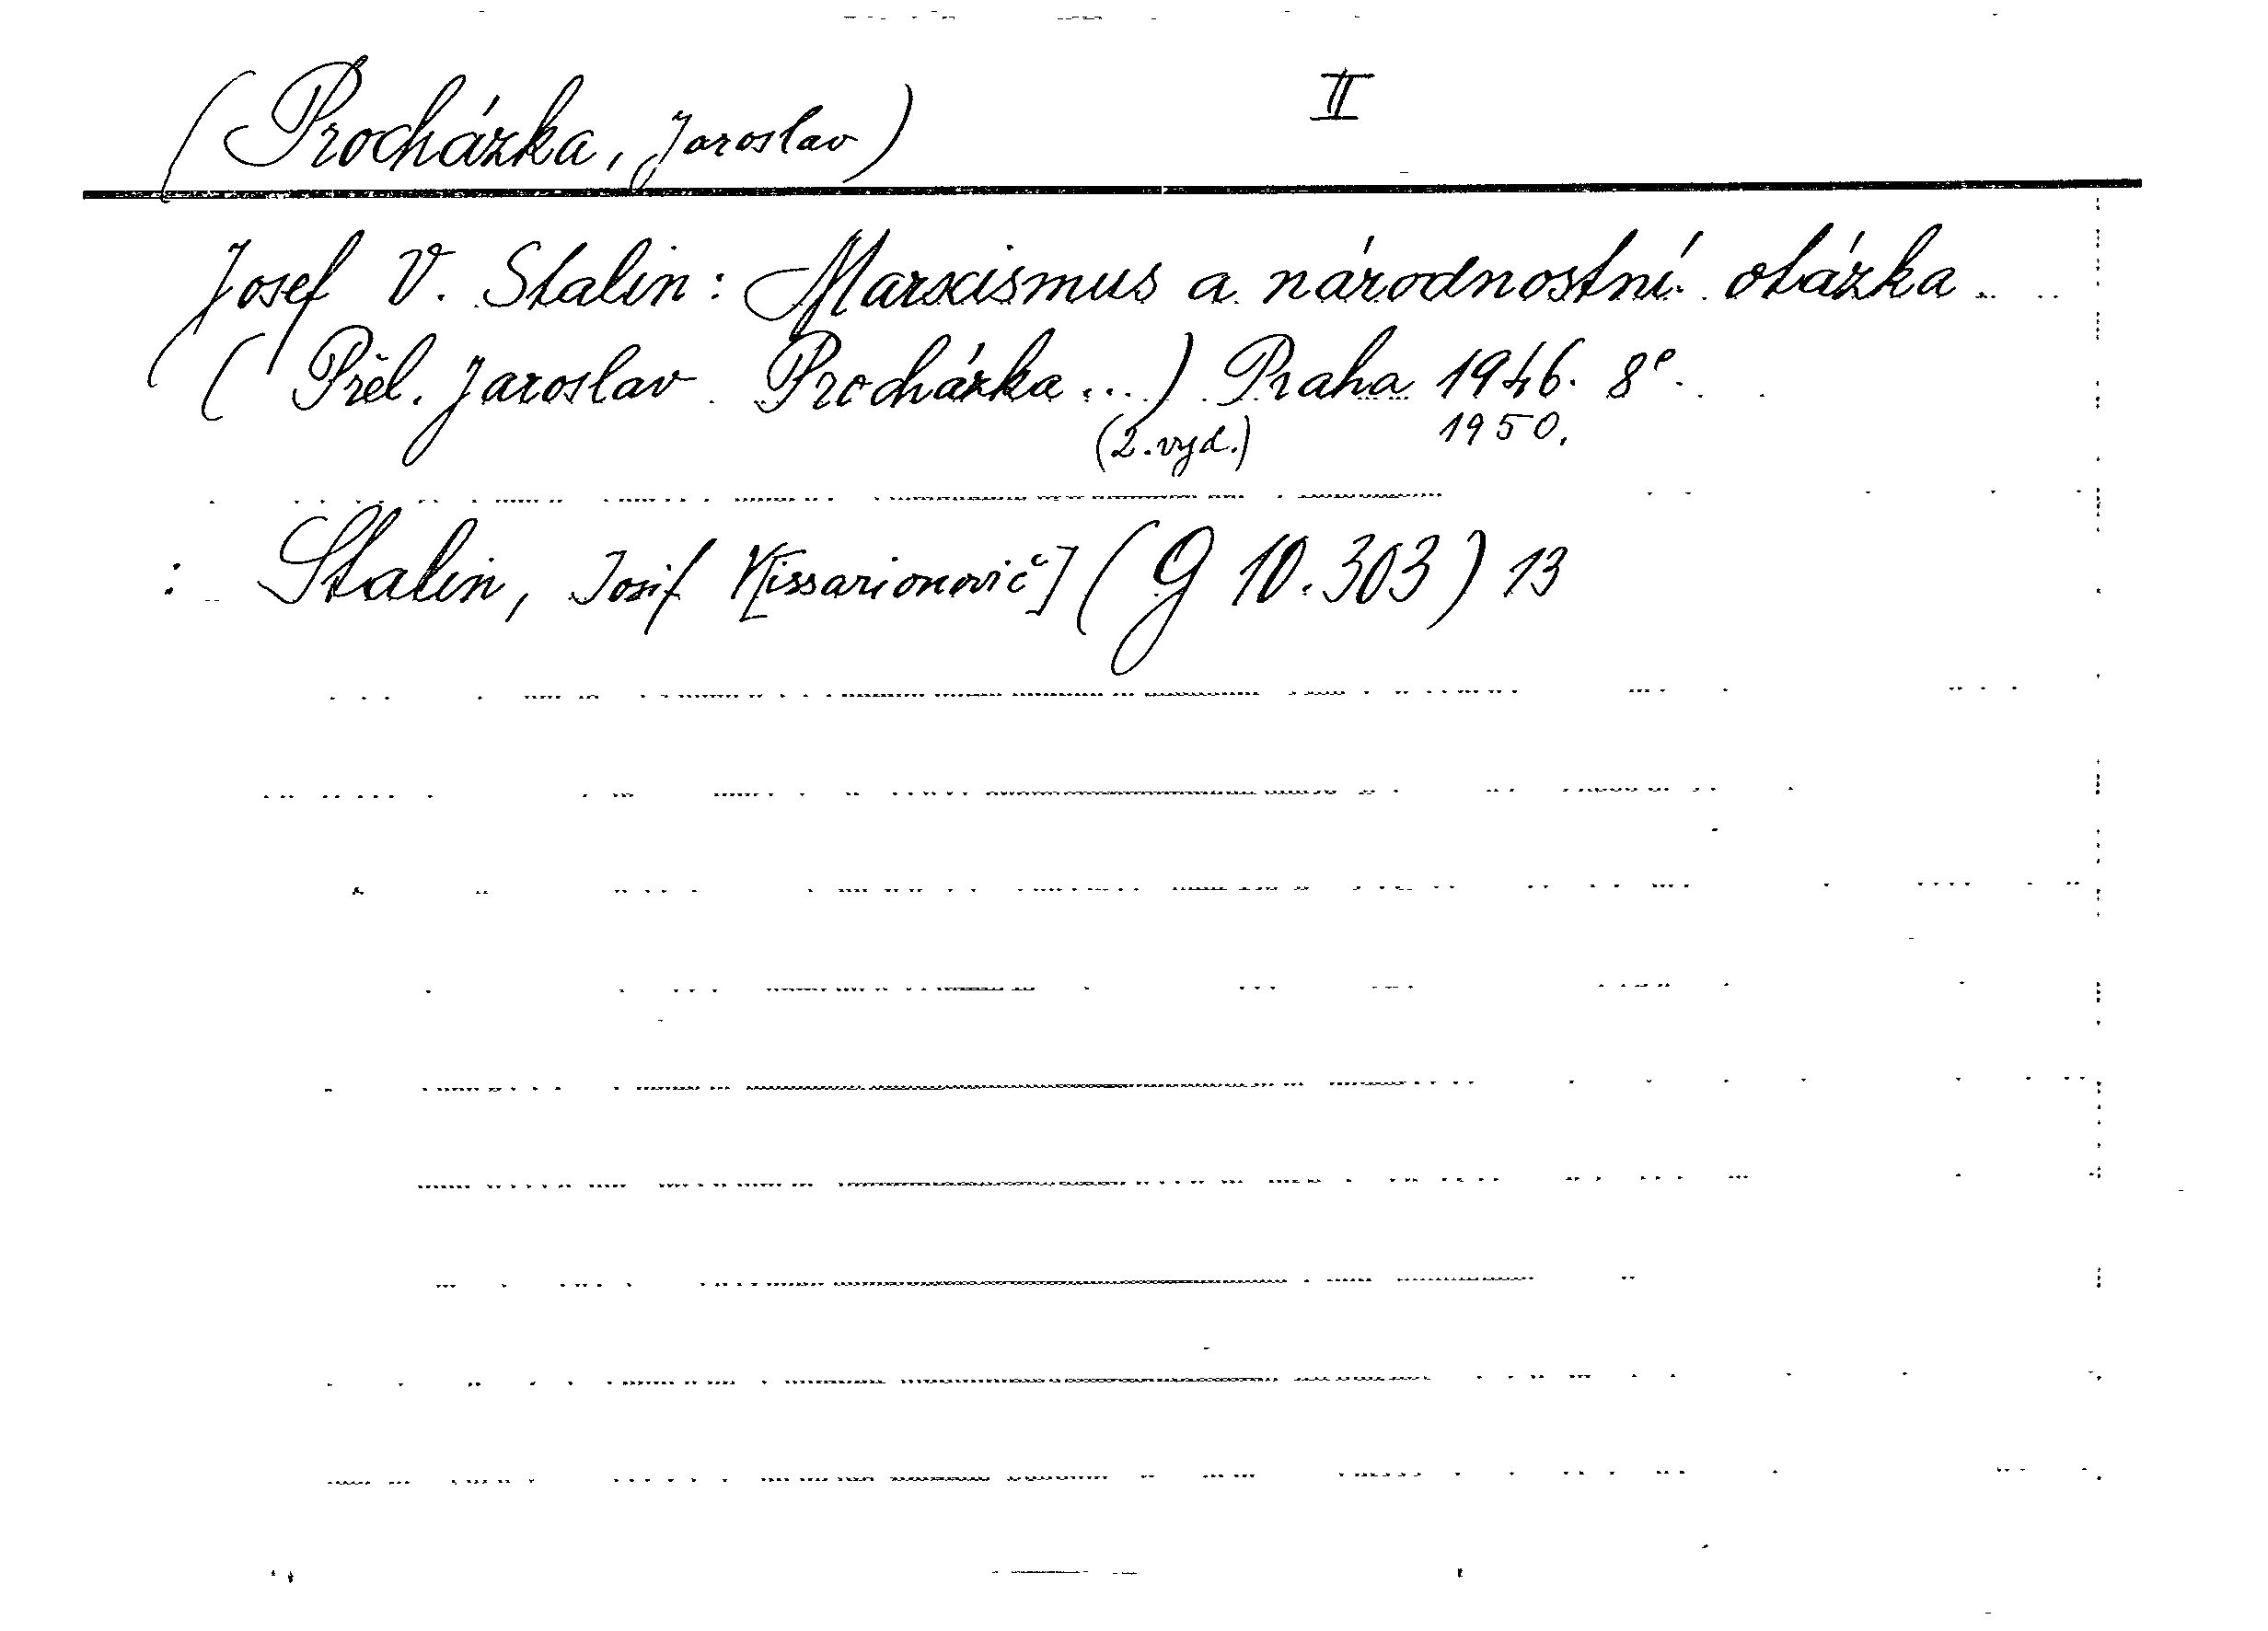 (Procházka, Jaroslav) II
Josef V. Stalin: Marxismus a národnostní otázka
(Přel. Jaroslav Procházka...) Praha 1946. 8°.
(2. vyd.) 1950.
: Stalin, Josif V[issarionovič] (G 10.303) 13